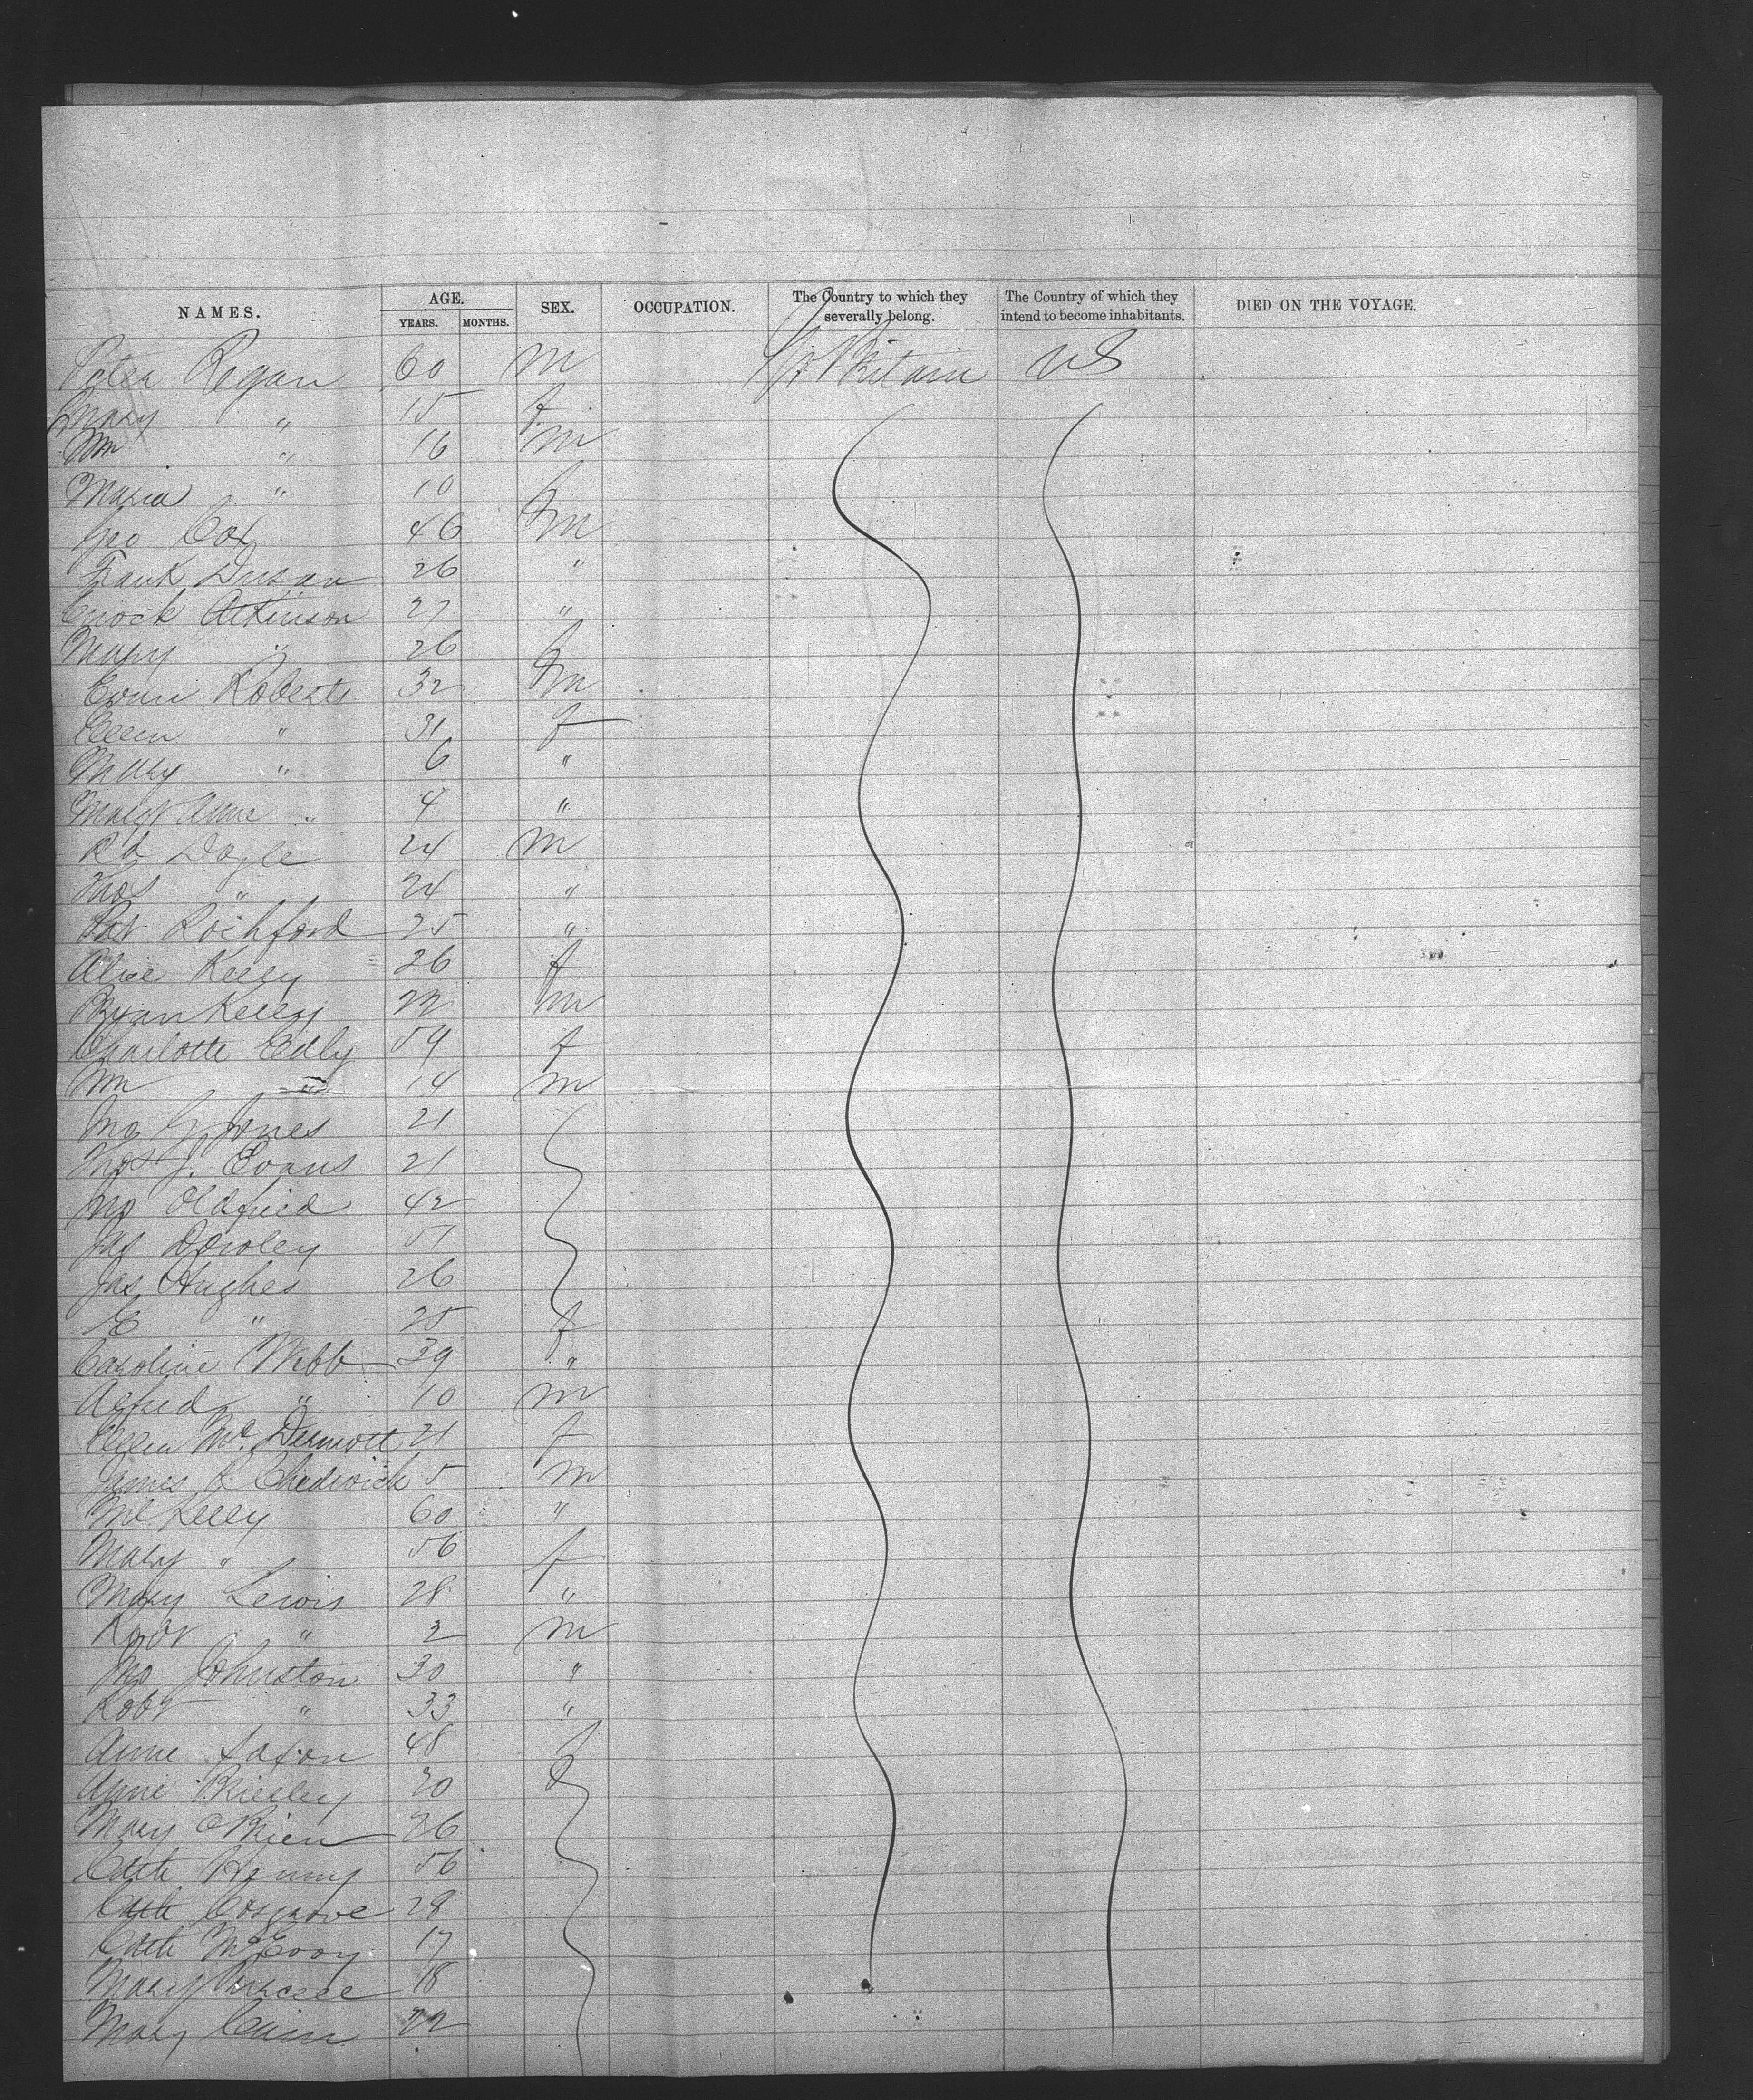 NAMES. AGE. SEX. OCCUPATION. The Country to which they severally belong. The Country of which they intend to become inhabitants. DIED ON THE VOYAGE.
YEARS. MONTHS.
Peter Regan 60 m Gt Britain US
Mary " 15 f
Wm " 16 m
Maria " 10 f
Geo Cox 46 m
Frank 26 "
Enock Atkinson 27 "
Mary " 26 f
Evan Roberts 32 m
Ellen " 31 f
Mary " 6 "
Mary Anne " 4 "
Rd Doyle 24 m
Thos " 24 "
Pat Rochford 25 "
Alice Kelly 26 f
Ryan Kelly m
Charlotte Edly 59 f
Wm " 14 m
Jno G Jones 21
Thos J. Evans 21
Jno Oldfield 42
Jas 51
Jas Hughes 26
E " 25 f
Caroline Webb 39 "
Alfred " 10 m
Ellen Mc Dermott 21 f
James R Chedwick 5 m
Ml Kelly 60 "
Mary " 56 f
Mary Lewis 28 "
Robt " 2 m
Jno Johnston 30 "
Robt " 33 "
Anne Saxon 48 f
Anne 20
Mary O'Brien 26
Cath 56
Cath Cosgrove 28
Cath McEvoy 17
Mary 18
Mary Cain 22